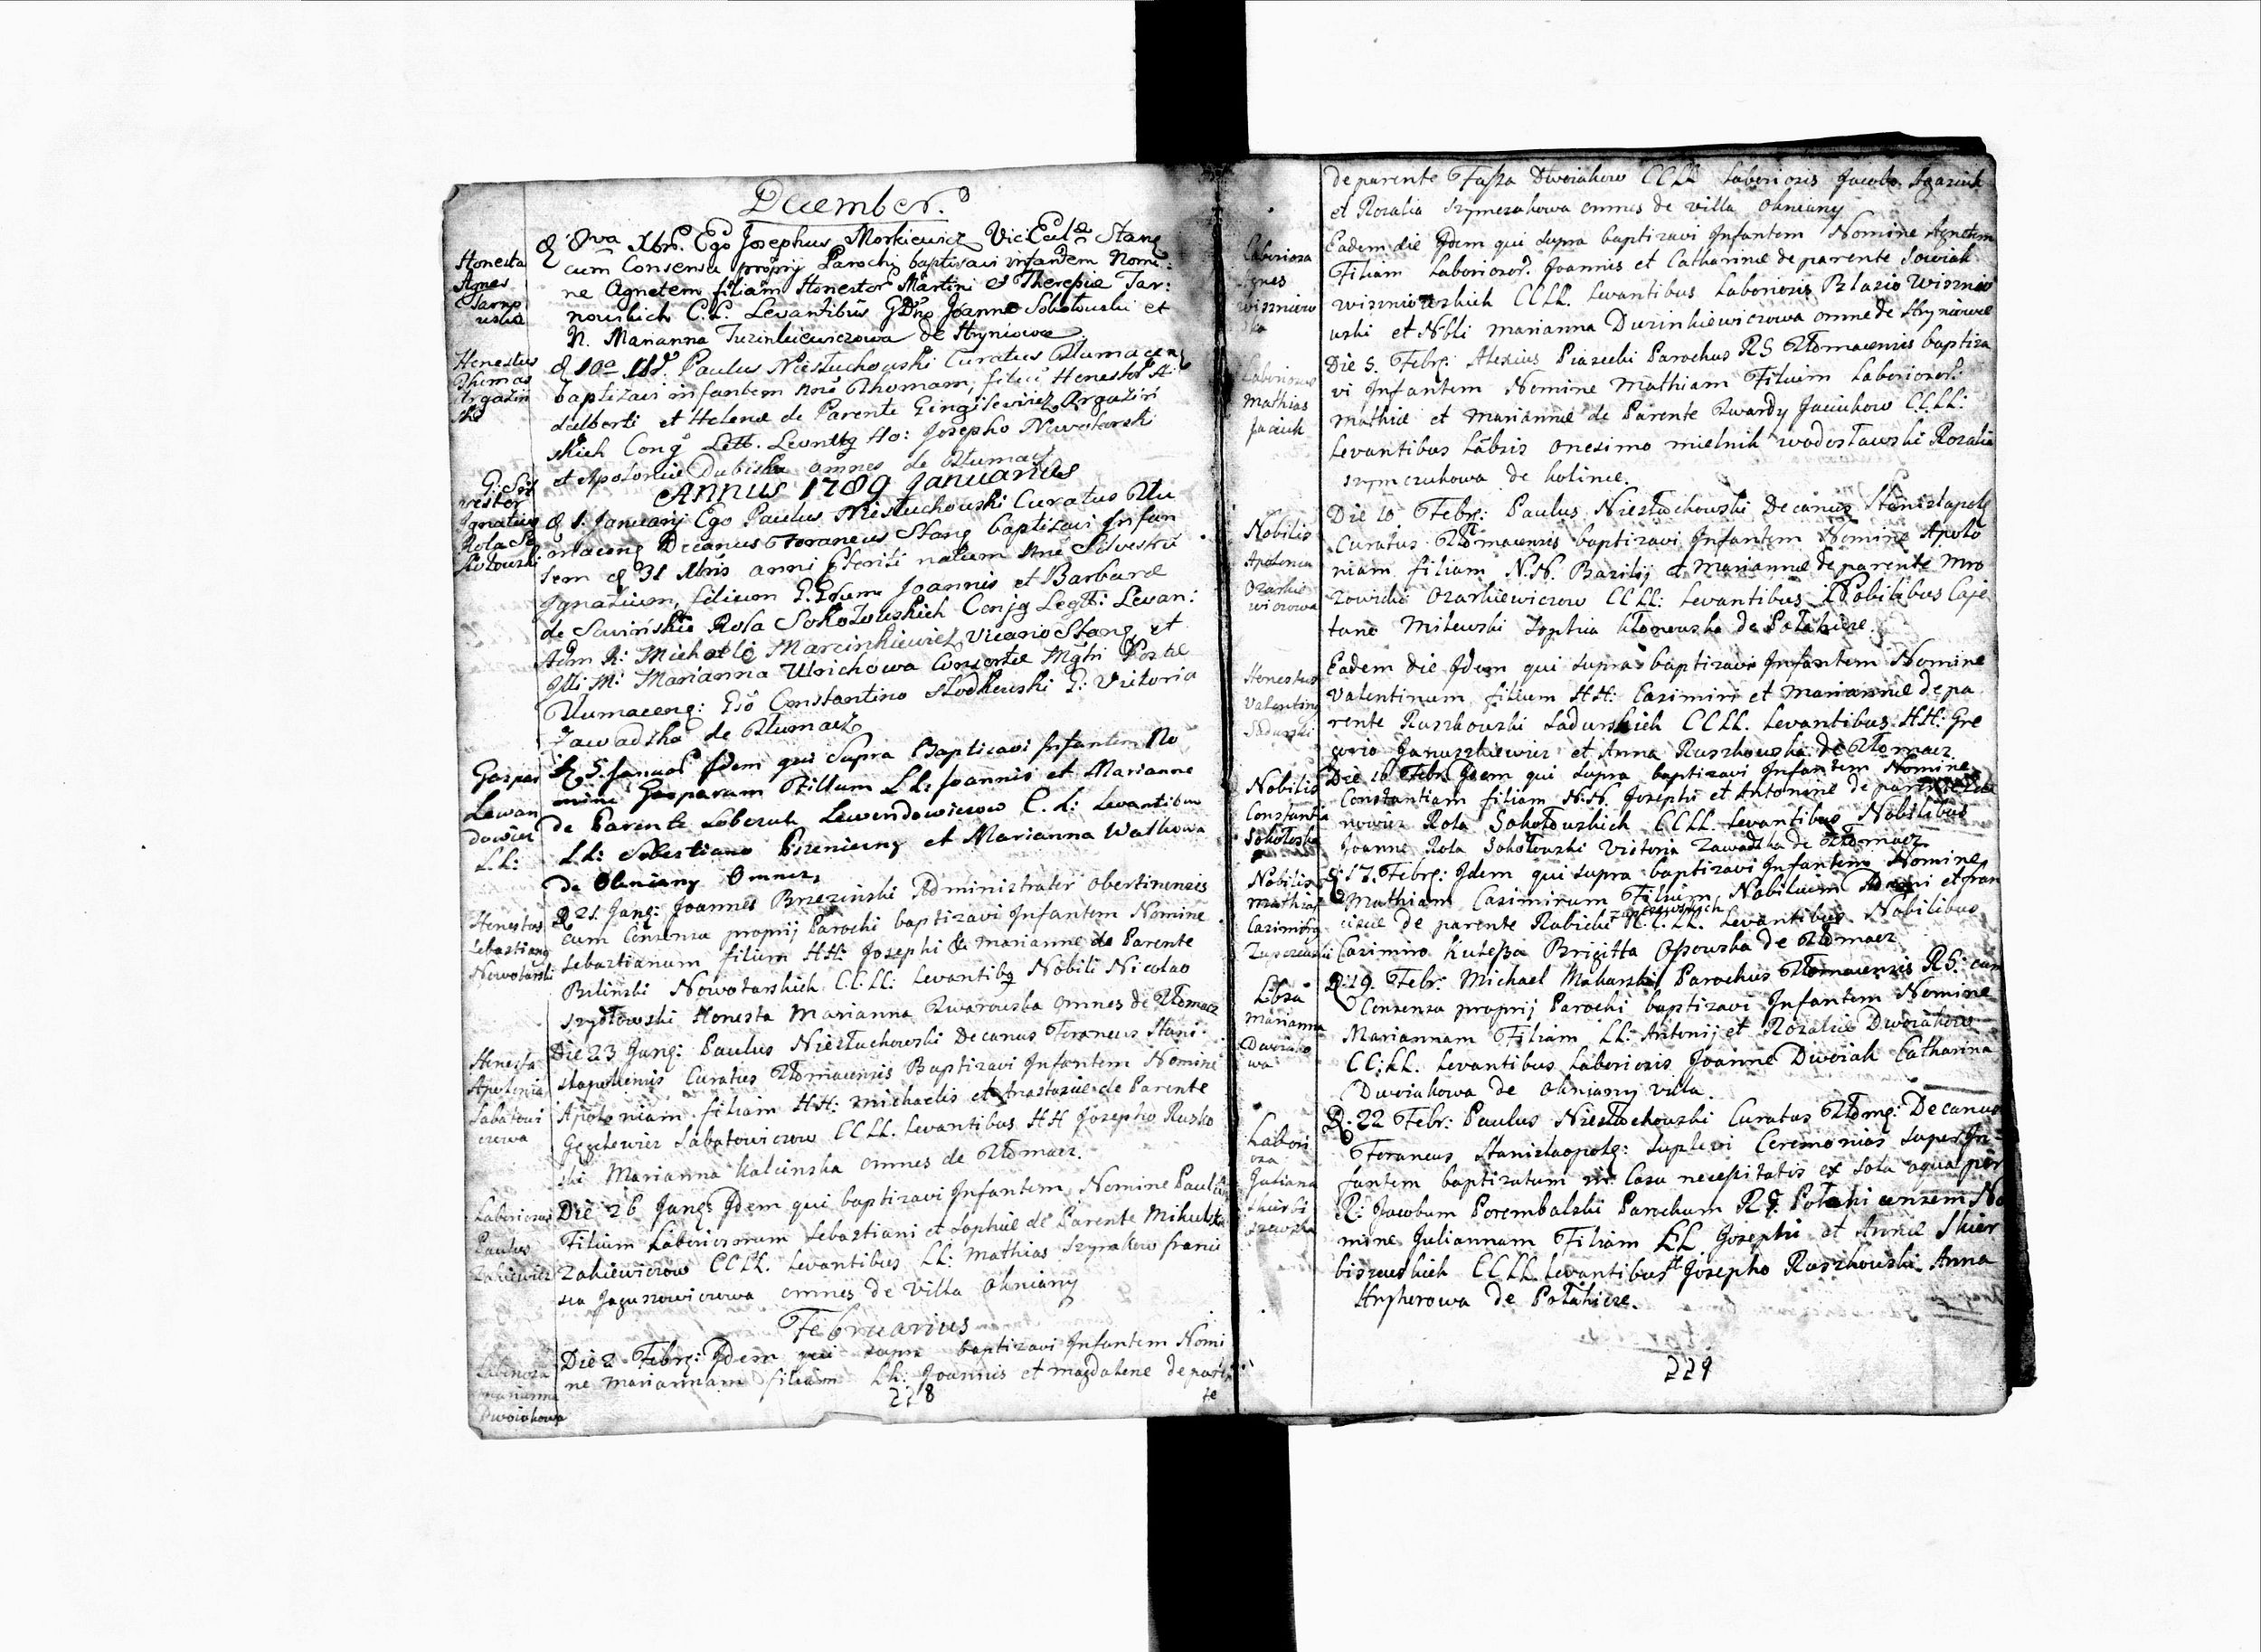 December.
Honesta
Agnes
Tarno
uska
d 8va Xbrs. Ego Josephus Morkiewicz Vic Ecalae Stang
cum Consensu proprij Parochi baptisavi infantem Nomi:
ne Agnetem filiam Honestor Martini et Theresiae Tar:
nouskich C:L: Levantibus GDno Joanne Sokołouski et
N. Marianna Turinkiewiczowa de Hryniowce
Honestus
Thomas
Argasin
ski
d 10a Xbr Paulus Niestuchouski Curatus Tłumaceng
baptizavi infantem noe Thomam, filiu Honestor A:
dalberti et Helenae de Parente Gingilewicz Argasin
skich Cong Leth. Levnttg Ho: Josepho Nowotarski
et Apolonia Dubiska omnes de Tłumacz
Annus 1789 Januarius
G: Sil
vester
Ignatius
Rola So
kołouski
d 1. January Ego Paulus Niestuchouski Curatus Tłu
maceng Decanus Foraneus Stang baptizavi Infan
tem d 31 Xbris anni Eteriti natum Nne Silvestru
Ignatium, filium G.Gsum Joannis et Barbarae
de Sawińskie Rola Sokołouskich Conjg Legtt: Levan:
Adm R: Michaele Marcinkiewicz Vicario Stang et
Illi M: Marianna Ulrichowa Consortae Mgtri Postae
Tłumaceng: Gso Constantino Słodkouski G: Victoria
Zawadska de Tłumacz
Gaspar
Lewan
dowicz
LL:
d 5. Januar Idem qui Supra Baptizavi Infantem No
mine Gasparum Filium LL: Joannis et Marianne
de Parente Lobczuk Lewendowiczow C. L: Levantibus
LL: Sebestiano Pszeniczny et Marianna Walkowa
de Okniany Omnes
Honestus
Sebastiang
Nowotarski
D 21. Jang: Joannes Brzezinski Administrator Obertinensis
cum Consensu proprij Parochi baptizavi Infantem Nomine
Sebastianum filium HH: Josephi & Mariannae de Parente
Bilinski Nowotarskich CC:LL: Levantibg Nobili Nicolao
Szydłowski Honesta Marianna Twarouska omnes de Tłomacz
Honesta
Apolonia
Sabatowi
czowa
Die 23 Jang: Paulus Niestuchowski Decanus Foraneus Stani
slapoliensis Curatus Tłomacensis Baptizavi Infantem Nomine
Apoloniam filiam HH: Michaelis et Anastaziae de Parente
Gęgelewicz Sabatowiczow CCLL. Levantibus HH Josepho Rusko
ski Marianna Kalcinska omnes de Tłomacz.
Laboriosus
Paulus
Zakiewicz
Die 26 Jang: Idem qui baptizavi Infantem Nomine Paulum
Filium Laboriosorum Sebastiani et Sophiae de Parente Mikulska
Zakiewiczow CCLL. Levantibus LL: Mathias Szynalew franci
sca Jaguszowiczowa omnes de Villa Okniany
Februarius
Laboriosa
Marianna
Dwoiakowa
Die 2 Febrg: Idem qui supra baptizavi Infantem Nomi
ne Mariannam filiam LL: Joannis et Magdalene de paren
te
228
de parente Fassza Dwoiakow CCLL Laboriosis Jacobo Agasiuk
et Rozalia Szymczukowa omnes de villa Okniany
Laboriosa
Agnes
Wiszniow
ska
Eadem die Idem qui supra baptizavi Infantem Nomine Agnetem
Filiam Laboriosor: Joannis et Catharinae de parente Sowiak
Wiszniowskich CCLL. Levantibus Laboriosis Blasio Wisznio
wski et Nobli Marianna Durinkiewiczowa omne de Hryniowce
Laboriosus
Mathias
Jaciuk
Die 5. Febrg: Alexius Piasecki Parochus RG Tłomacensis baptiza
vi Infantem Nomine Mathiam Filium Laboriosor:
Mathiae et Mariannae de Parente Twardy Jaciukow CCLL:
Levantibus Labsis Onesimo Mielnik Wodosławski Rozalia
Szymczukowa de Kolince.
Nobilis
Apolonia
Ozarkie
wiczowa
Die 10 Febrg: Paulus Niestuchowski Decanus Stanislapolg
Curatus Tłomacensis baptizavi Infantem Nomine Apolo
niam filiam N.N. Bazilij et Mariannae de parente Mro
zowicki Ozarkiewiczow CCLL: Levantibus Nobilibus Caje
tano Milewski Sophia Kłonouska de Pałahicze.
Honestus
Valentinus
Sadurski
Eadem die Idem qui supra baptizavi Infantem Nomine
Valentinum filium HH: Casimiri et Mariannae de pa
rente Ruszkouski Sadurskich CCLL. Levantibus HH: Gre
gorio Januszkiewicz et Anna Ruszkouska de Tłomacz
Nobilis
Constantia
Sokołoska
Die 16 Febr. Idem qui supra baptizavi Infantem Nomine
Constantiam filiam N:N. Josephi et Antoninae de parente
nowicz Rola Sokołouskich CCLL. Levantibus Nobilibus
Joanne Rola Sokołouski Victoria Zawadzka de Tłomacz
Nobilis
Mathias
Casimirg
D 17. Febrg: Idem qui supra baptizavi Infantem Nomine
Mathiam Casimirum Filium Nobilium et fran
ciscae de parente Rabicki CCLL. Levantibus Nobilibus
Casimiro Kulessza Brigitta Ossowska de Tłomacz
Lbsa
Marianna
Dwoiako
wa
D: 19. Febr: Michael Makarski Parochus Tłomacensis RG: cum
Consensu proprij Parochi baptizavi Infantem Nomine
Mariannam Filiam LL: Antonij et Rozaliae Dwoiakow
CC:LL. Levantibus Laboriosis Joanne Dwoiak Catharina
Dwoiakowa de Okniany villa.
Labori
osa
Juliana
Skierbi
szewska
D. 22 Febr: Paulus Niestuchouski Curatus Tłomg: Decanus
Foraneus Stanislaopolg: Suplevi Ceremonias super In-
fantem baptizatum in Casu necessitatis ex sola aqua per
R: Jacobum Porembalski Parochum RG Pałahicensem No
mine Juliannam Filiam LL Josephi et Annae Skier
biszeuskich CCLL Levantibus Josepho Ruszkouski Anna
Hrycherowa de Pałahicze.
229